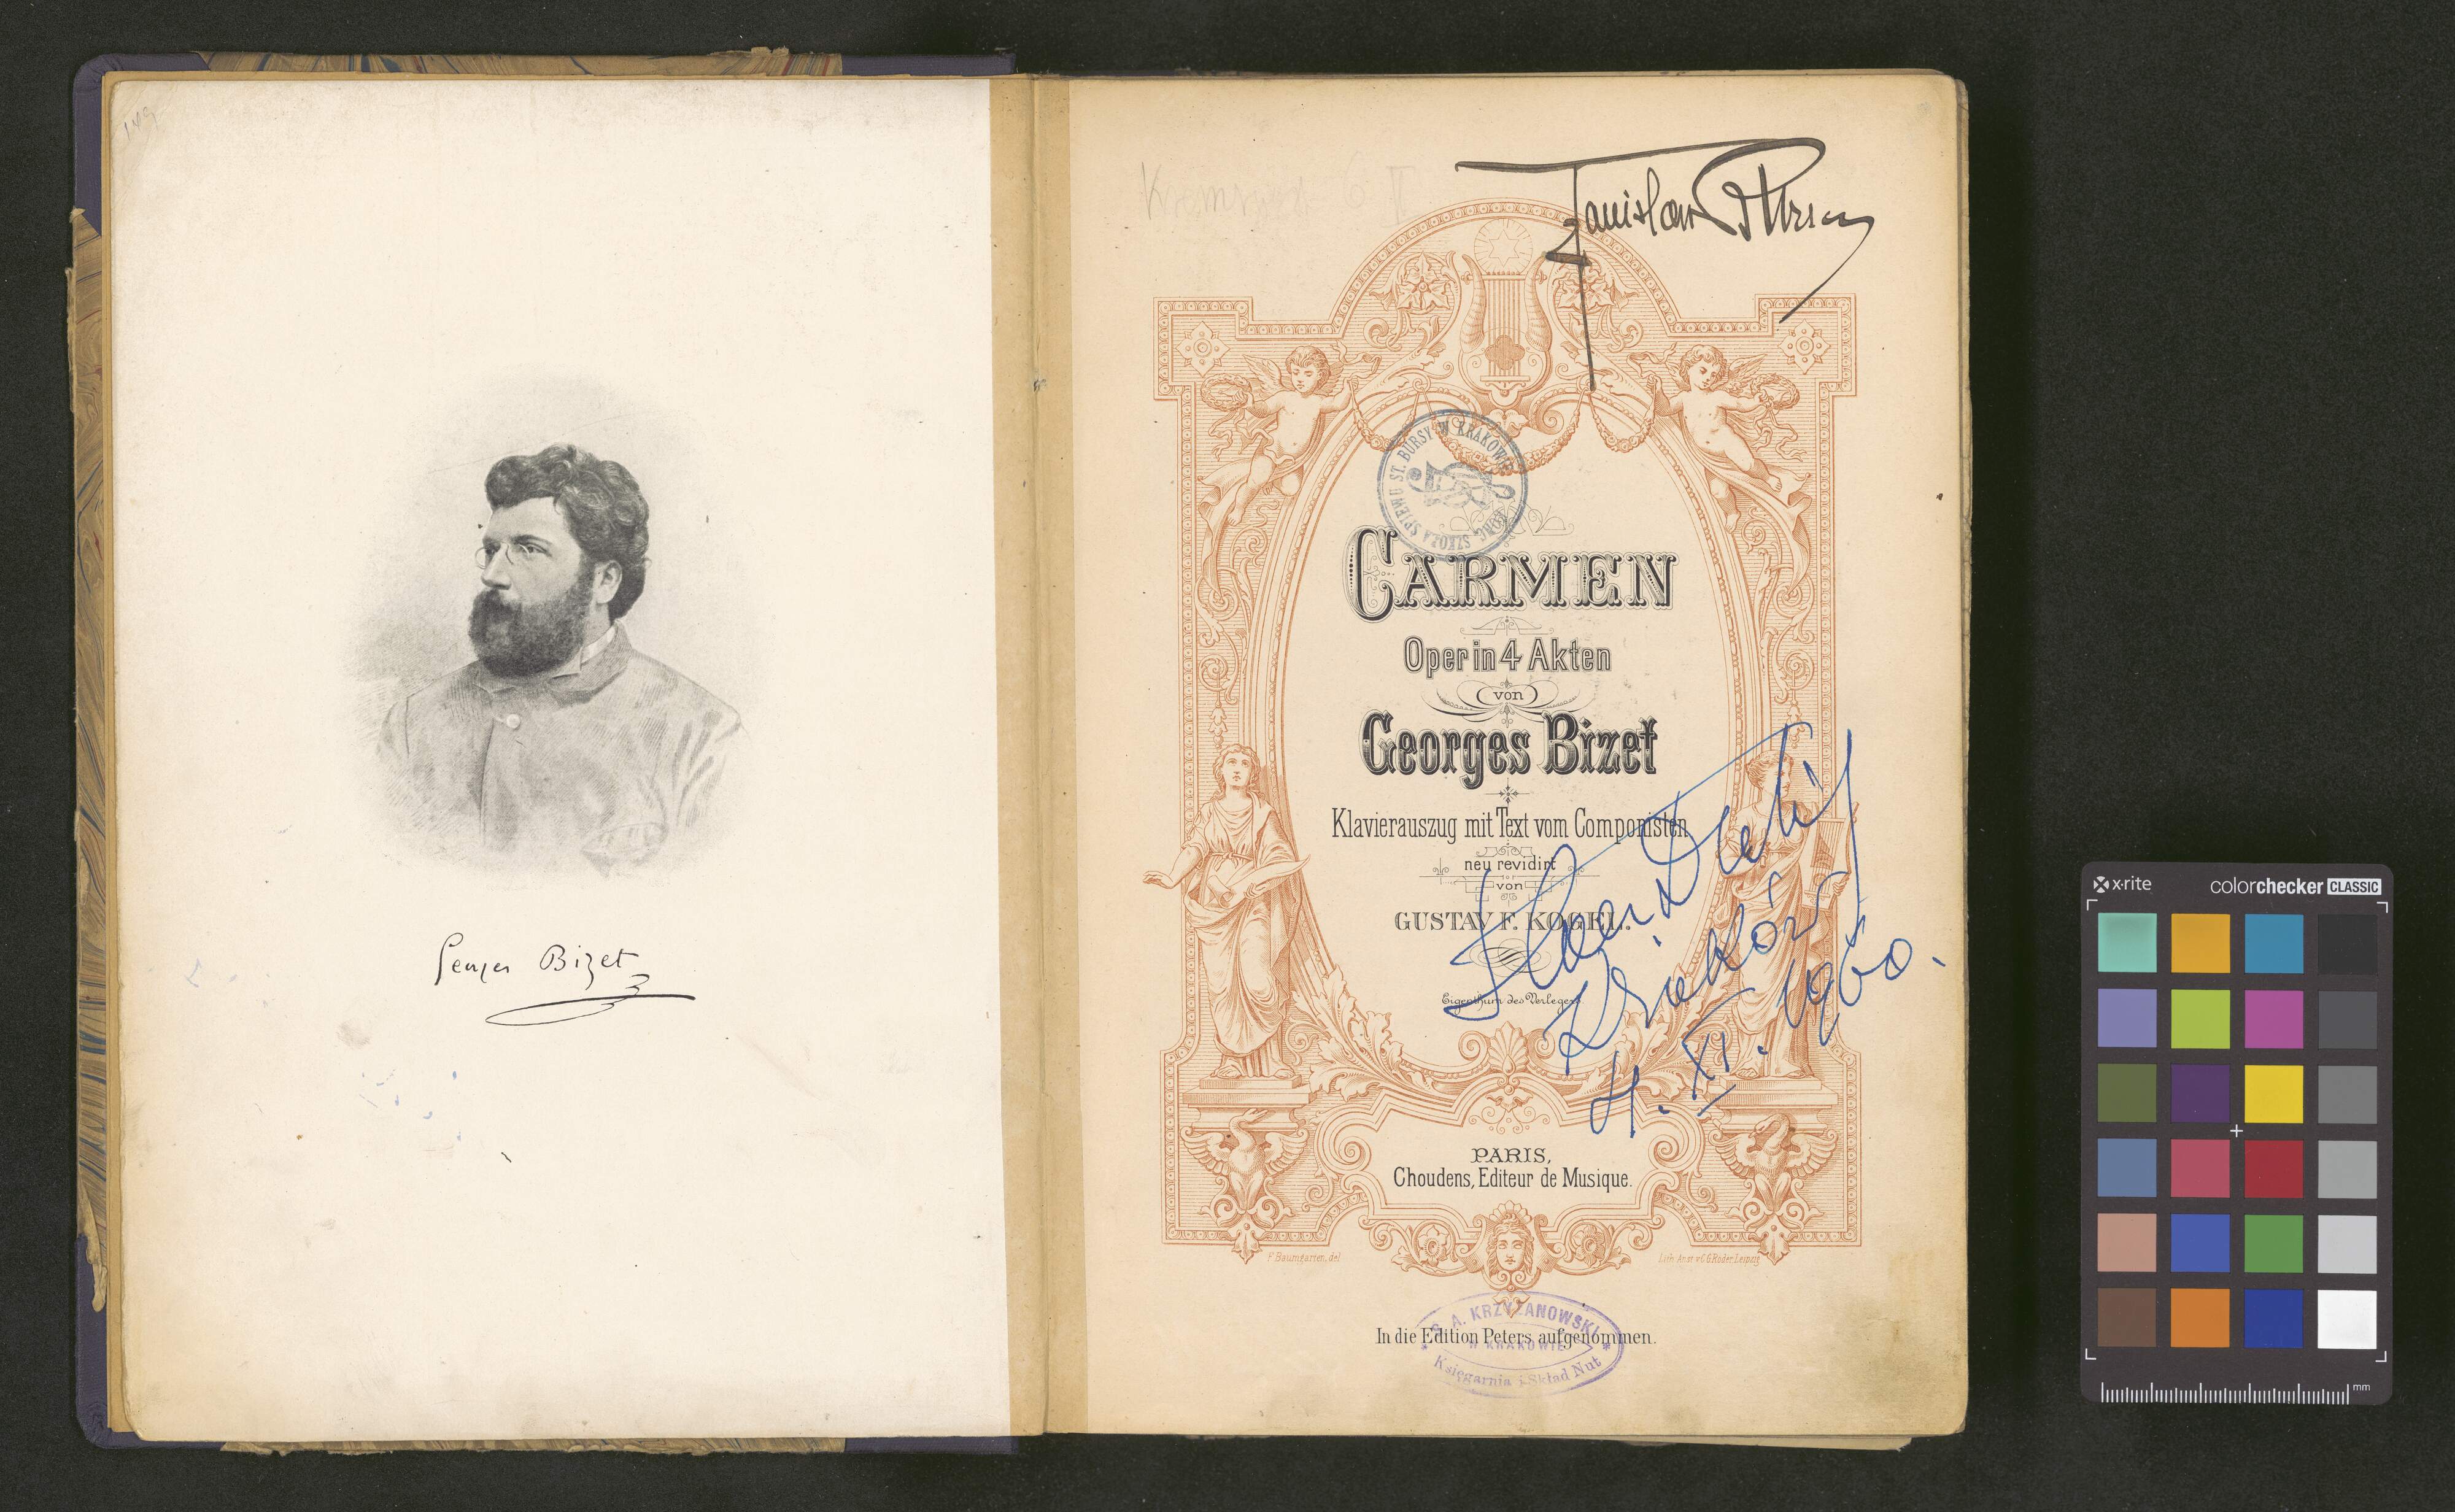 149
Georges Bizet
Stanisław Bursa
KONC. SZKOŁA ŚPIEWU ST. BURSY W KRAKOWIE
CARMEN
Oper in 4 Akten
von
Georges Bizet
Klavierauszug mit Text vom Componisten
neu revidirt
von
GUSTAV F. KOGEL.
Eigenthum des Verlegers.
Kraków
4. XI. 1960.
PARIS,
Choudens, Editeur de Musique.
F. Baumgarten, del
Lith. Anst. v. C. G. Röder, Leipzig
In die Edition Peters aufgenommen.
S. A. KRZYŻANOWSKI
W KRAKOWIE
Księgarnia i Skład Nut
x-rite
colorchecker CLASSIC
mm